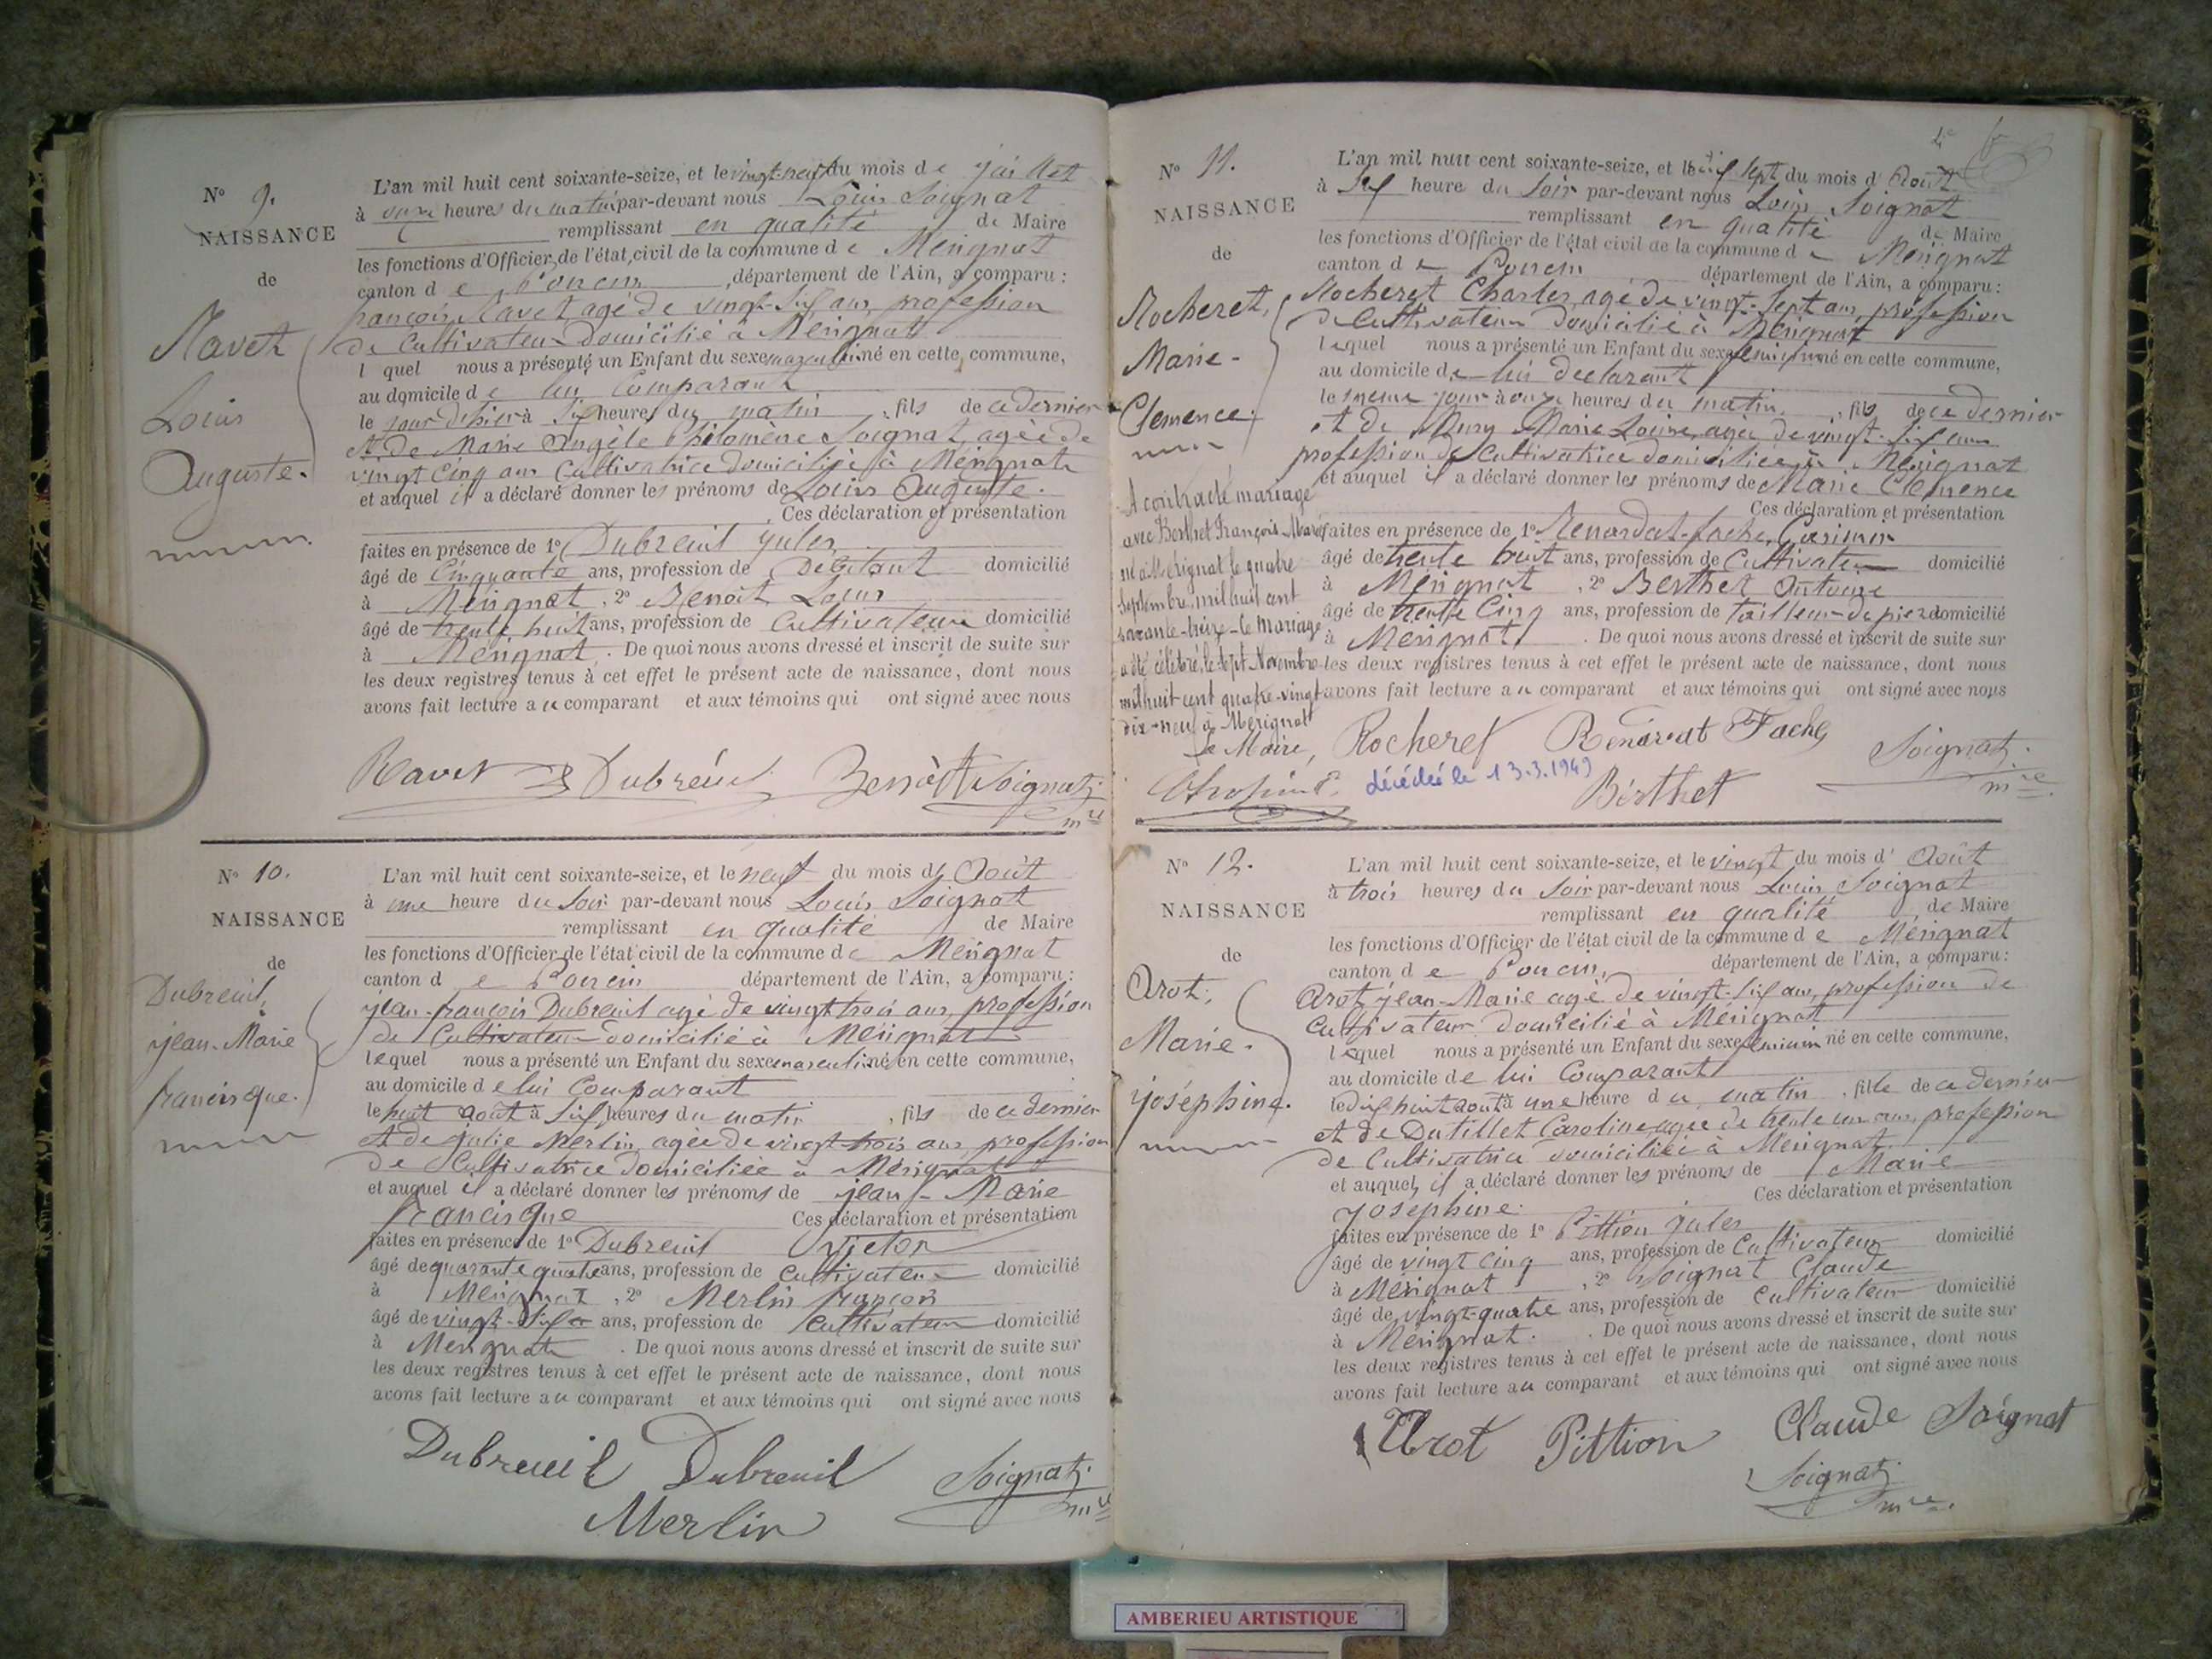 N° 9.
NAISSANCE
de
Ravet
Louis
Auguste.
L'an mil huit cent soixante-seize, et le vingt-neuf du mois de juillet
à onze heures du matin par-devant nous Louis Soignat
remplissant en qualité de Maire
les fonctions d'Officier de l'état civil de la commune de Mérignat
canton de Poncin, département de l'Ain, a comparu :
françois Ravet agé de vingt-six ans, profession
de Cultivateur domicilié à Mérignat
l quel nous a présenté un Enfant du sexe masculin né en cette commune,
au domicile de lui Comparant
le jour d'hier à six heures du matin, fils de ce dernier
et de Marie Angèle Philomène Soignat, agée de
vingt cinq ans Cultivatrice domiciliée à Mérignat
et auquel il a déclaré donner les prénoms de Louis Auguste.
Ces déclaration et présentation
faites en présence de 1° Dubreuil jules
âgé de Cinquante ans, profession de Débitant domicilié
à Mérignat, 2° Benoit Louis
âgé de trente huit ans, profession de Cultivateur domicilié
à Mérignat. De quoi nous avons dressé et inscrit de suite sur
les deux registres tenus à cet effet le présent acte de naissance, dont nous
avons fait lecture au comparant et aux témoins qui ont signé avec nous
Ravet Dubreuil Benoît Soignat
mre
N° 10.
NAISSANCE
de
Dubreuil,
jean-Marie
francisque.
L'an mil huit cent soixante-seize, et le neuf du mois d'Août
à une heure du Soir par-devant nous Louis Soignat
remplissant en qualité de Maire
les fonctions d'Officier de l'état civil de la commune de Mérignat
canton de Poncin département de l'Ain, a comparu :
jean-françois Dubreuil agé de vingt trois ans, profession
de Cultivateur domicilié à Mérignat
lequel nous a présenté un Enfant du sexe masculin né en cette commune,
au domicile de lui Comparant
le huit août à six heures du matin, fils de ce dernier
et de julie Merlin, agée de vingt-trois ans, profession
de Cultivatrice domiciliée à Mérignat
et auquel il a déclaré donner les prénoms de jean-Marie
francisque Ces déclaration et présentation
faites en présence de 1° Dubreuil Victor
âgé de quarante quatre ans, profession de Cultivateur domicilié
à Mérignat, 2° Merlin françois
âgé de vingt-six ans, profession de Cultivateur domicilié
à Mérignat. De quoi nous avons dressé et inscrit de suite sur
les deux registres tenus à cet effet le présent acte de naissance, dont nous
avons fait lecture au comparant et aux témoins qui ont signé avec nous
Dubreuil Dubreuil Soignat
Merlin mre
N° 11.
NAISSANCE
de
Rocheret,
Marie-
Clemence.
A contracté mariage
avec Berthet François-Marie
né à Mérignat le quatre
septembre mil huit cent
soixante-treize-le mariage
a été célébré le sept Novembre
mil huit cent quatre-vingt
dix-neuf à Mérignat
Le Maire,
L'an mil huit cent soixante-seize, et le dix sept du mois d'Août
à six heure du Soir par-devant nous Louis Soignat
remplissant en qualité de Maire
les fonctions d'Officier de l'état civil de la commune de Mérignat
canton de Poncin département de l'Ain, a comparu :
Rocheret Charles, agé de vingt-sept ans, profession
de Cultivateur domicilié à Mérignat
lequel nous a présenté un Enfant du sexe féminin né en cette commune,
au domicile de lui déclarant
le meme jour à onze heures du matin, fils de ce dernier
et de Mury Marie Louise, agée de vingt-six ans
profession de Cultivatrice domiciliée à Mérignat
et auquel il a déclaré donner les prénoms de Marie Clemence
Ces déclaration et présentation
faites en présence de 1° Renardat-fache, Casimir
âgé de trente huit ans, profession de Cultivateur domicilié
à Mérignat, 2° Berthet Antoine
âgé de trente Cinq ans, profession de tailleur de pierre domicilié
à Mérignat. De quoi nous avons dressé et inscrit de suite sur
les deux registres tenus à cet effet le présent acte de naissance, dont nous
avons fait lecture au comparant et aux témoins qui ont signé avec nous
Rocheret Renardat Fache Soignat
décédée le 13.3.1949 Berthet mre
N° 12.
NAISSANCE
de
Arot,
Marie-
joséphine.
L'an mil huit cent soixante-seize, et le vingt du mois d'Août
à trois heures du Soir par-devant nous Louis Soignat
remplissant en qualité de Maire
les fonctions d'Officier de l'état civil de la commune de Mérignat
canton de Poncin, département de l'Ain, a comparu :
Arot jean-Marie agé de vingt-six ans, profession de
Cultivateur domicilié à Mérignat
lequel nous a présenté un Enfant du sexe féminin né en cette commune,
au domicile de lui Comparant
le dix huit août à une heure du matin, fille de ce dernier
et de Dutillet Caroline, agée de trente un ans, profession
de Cultivatrice domiciliée à Mérignat
et auquel, il a déclaré donner les prénoms de Marie
Josephine. Ces déclaration et présentation
faites en présence de 1° Pittion jules
âgé de vingt cinq ans, profession de Cultivateur domicilié
à Mérignat, 2° Soignat Claude
âgé de vingt-quatre ans, profession de Cultivateur domicilié
à Mérignat. De quoi nous avons dressé et inscrit de suite sur
les deux registres tenus à cet effet le présent acte de naissance, dont nous
avons fait lecture au comparant et aux témoins qui ont signé avec nous
Arot Pittion Claude Soignat
Soignat
mre.
AMBERIEU ARTISTIQUE